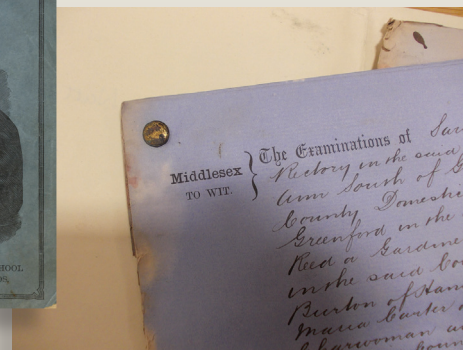 HOOL
The Examinations of
Middlesex
TO WIT.
Rectory in the said
Ann South of G
County Domesti
Greenford in the
Reed a Gardine
in the said Co
Burton of Han
Maria Carter
Charwoman a